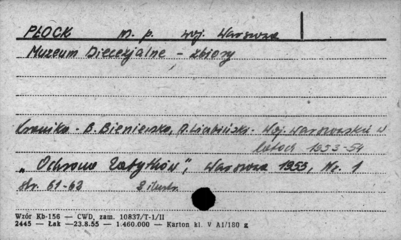 PŁOCK m. p. woj. Warszawa
Muzeum Diecezjalne - zbiory
Kronika - B. Bieniewska, A. Liabiński - Woj. Warszawskie w
latach 1953-54
"Ochrona Zabytków", Warszawa 1953, Nr. 1
str. 61-62 3 ilustr.
Wzór Kb-156 — CWD, zam. 10837/T-1/II
2445 — Łak —23.8.55 — 1.460.000 — Karton kl. V A1/180 g